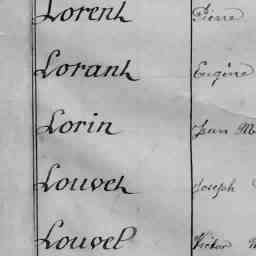 Lorent Pierre
Lorant Eugène
Lorin Jean M
Louvet Joseph
Louvel Victor